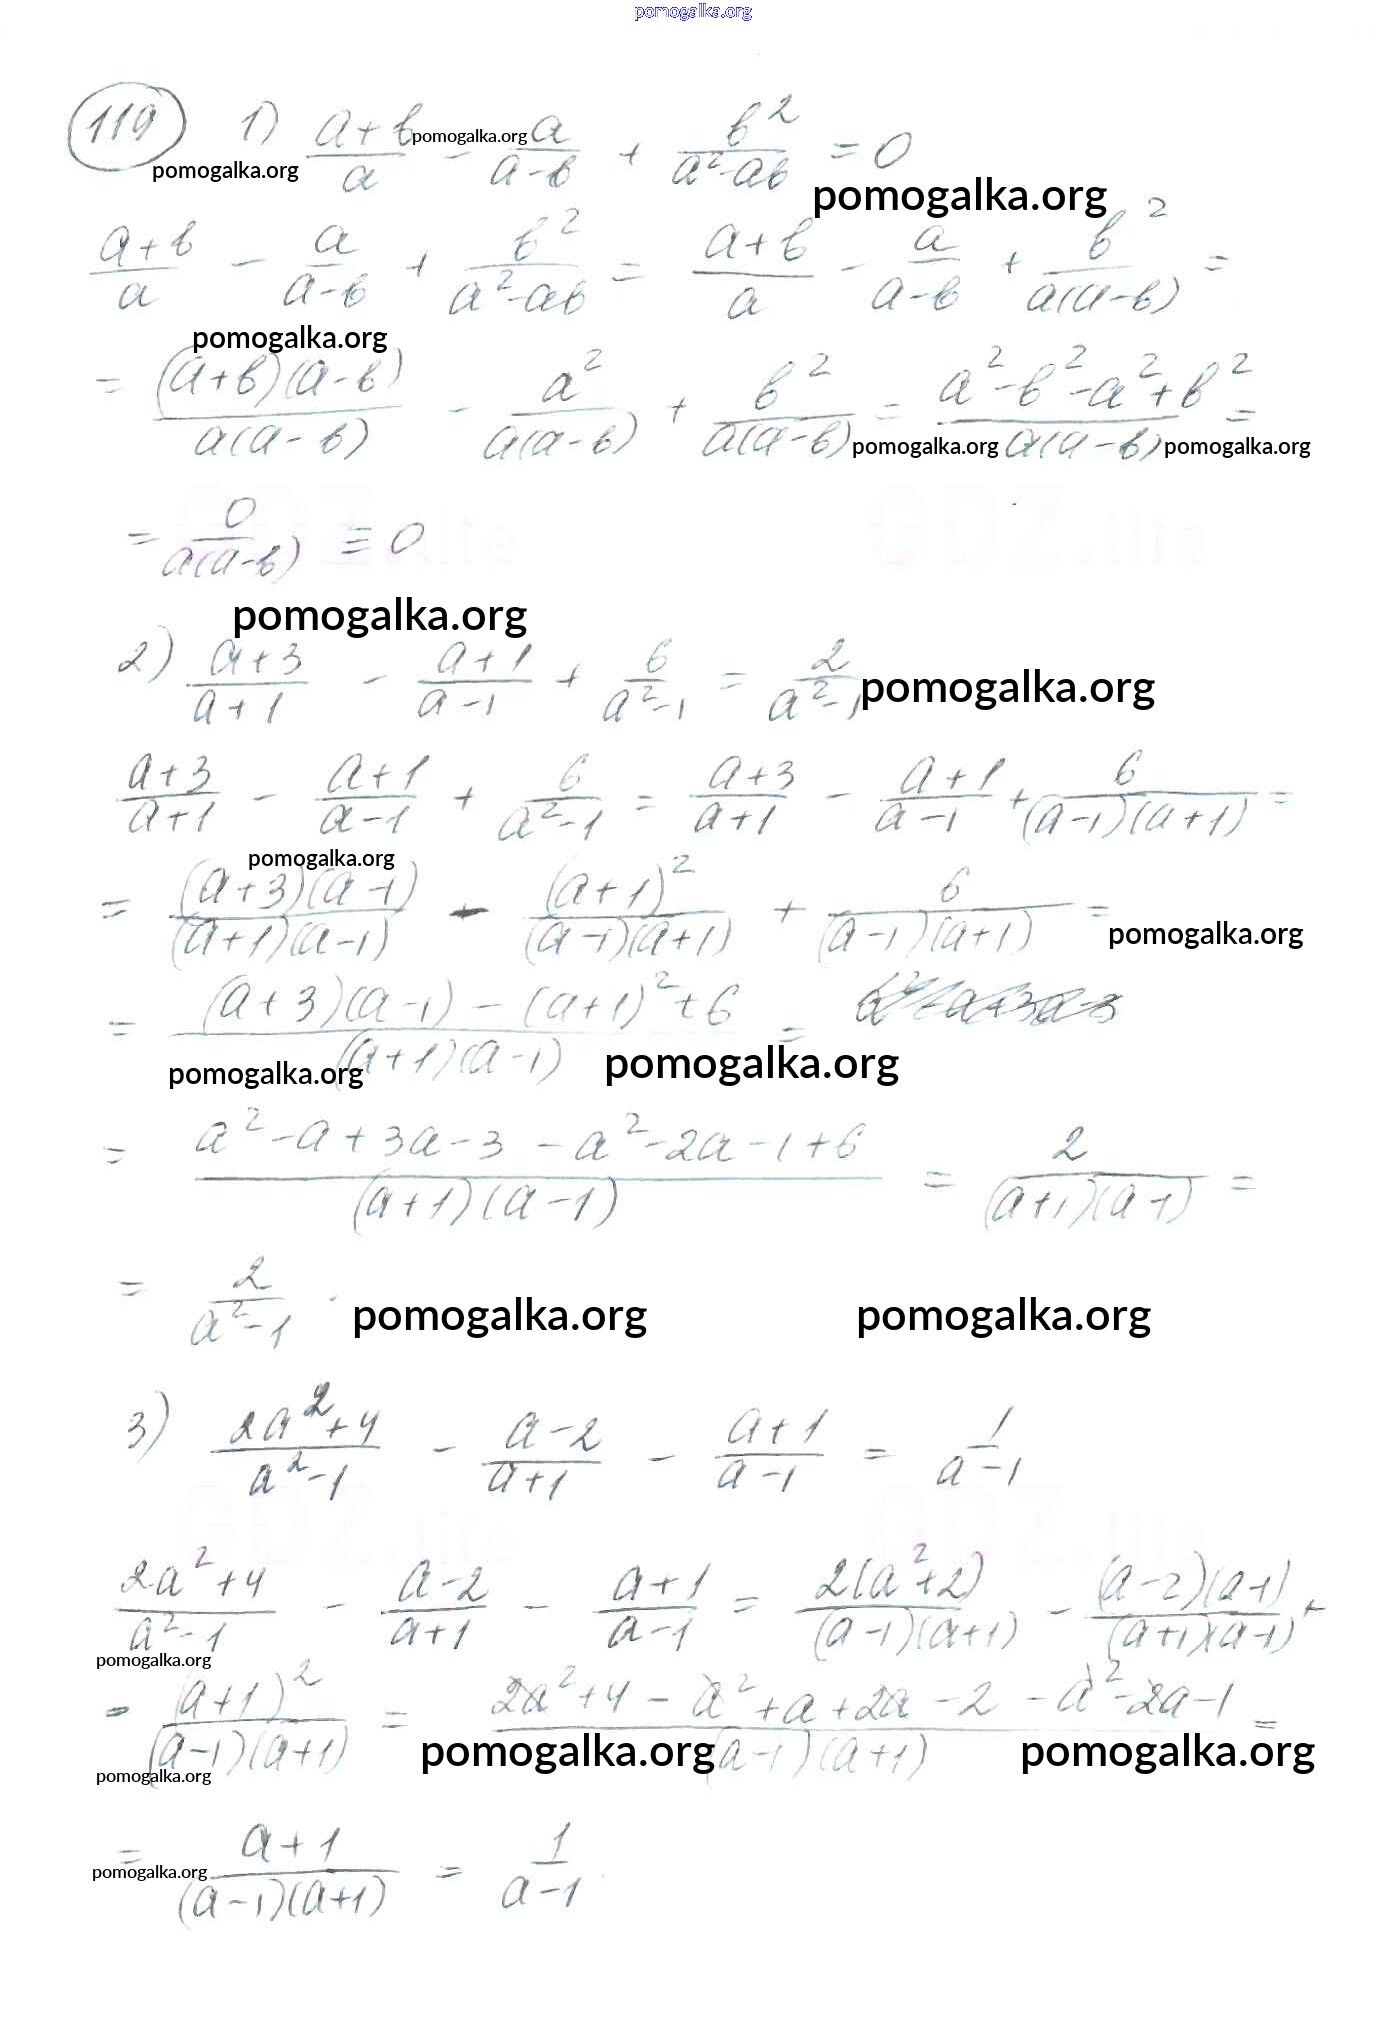 pomogalka.org
119 1) (a+b)/a - a/(a-b) + b²/(a²-ab) = 0
pomogalka.org pomogalka.org pomogalka.org
(a+b)/a - a/(a-b) + b²/(a²-ab) = (a+b)/a - a/(a-b) + b²/(a(a-b)) =
pomogalka.org
= (a+b)(a-b)/(a(a-b)) - a²/(a(a-b)) + b²/(a(a-b)) = (a²-b²-a²+b²)/(a(a-b)) =
pomogalka.org pomogalka.org
= 0/(a(a-b)) ≡ 0
GDZ.life GDZ.life
pomogalka.org
2) (a+3)/(a+1) - (a+1)/(a-1) + 6/(a²-1) = 2/(a²-1)
pomogalka.org
(a+3)/(a+1) - (a+1)/(a-1) + 6/(a²-1) = (a+3)/(a+1) - (a+1)/(a-1) + 6/((a-1)(a+1)) =
pomogalka.org
= (a+3)(a-1)/((a+1)(a-1)) - (a+1)²/((a-1)(a+1)) + 6/((a-1)(a+1)) =
pomogalka.org
= ((a+3)(a-1) - (a+1)²+6)/((a+1)(a-1)) =
pomogalka.org pomogalka.org
= (a²-a+3a-3-a²-2a-1+6)/((a+1)(a-1)) = 2/((a+1)(a-1)) =
= 2/(a²-1).
pomogalka.org pomogalka.org
3) (2a²+4)/(a²-1) - (a-2)/(a+1) - (a+1)/(a-1) = 1/(a-1)
GDZ.life GDZ.life
(2a²+4)/(a²-1) - (a-2)/(a+1) - (a+1)/(a-1) = 2(a²+2)/((a-1)(a+1)) - (a-2)(a-1)/((a+1)(a-1)) -
pomogalka.org
- (a+1)²/((a-1)(a+1)) = (2a²+4-a²+a+2a-2-a²-2a-1)/((a-1)(a+1)) =
pomogalka.org pomogalka.org pomogalka.org
= (a+1)/((a-1)(a+1)) = 1/(a-1).
pomogalka.org